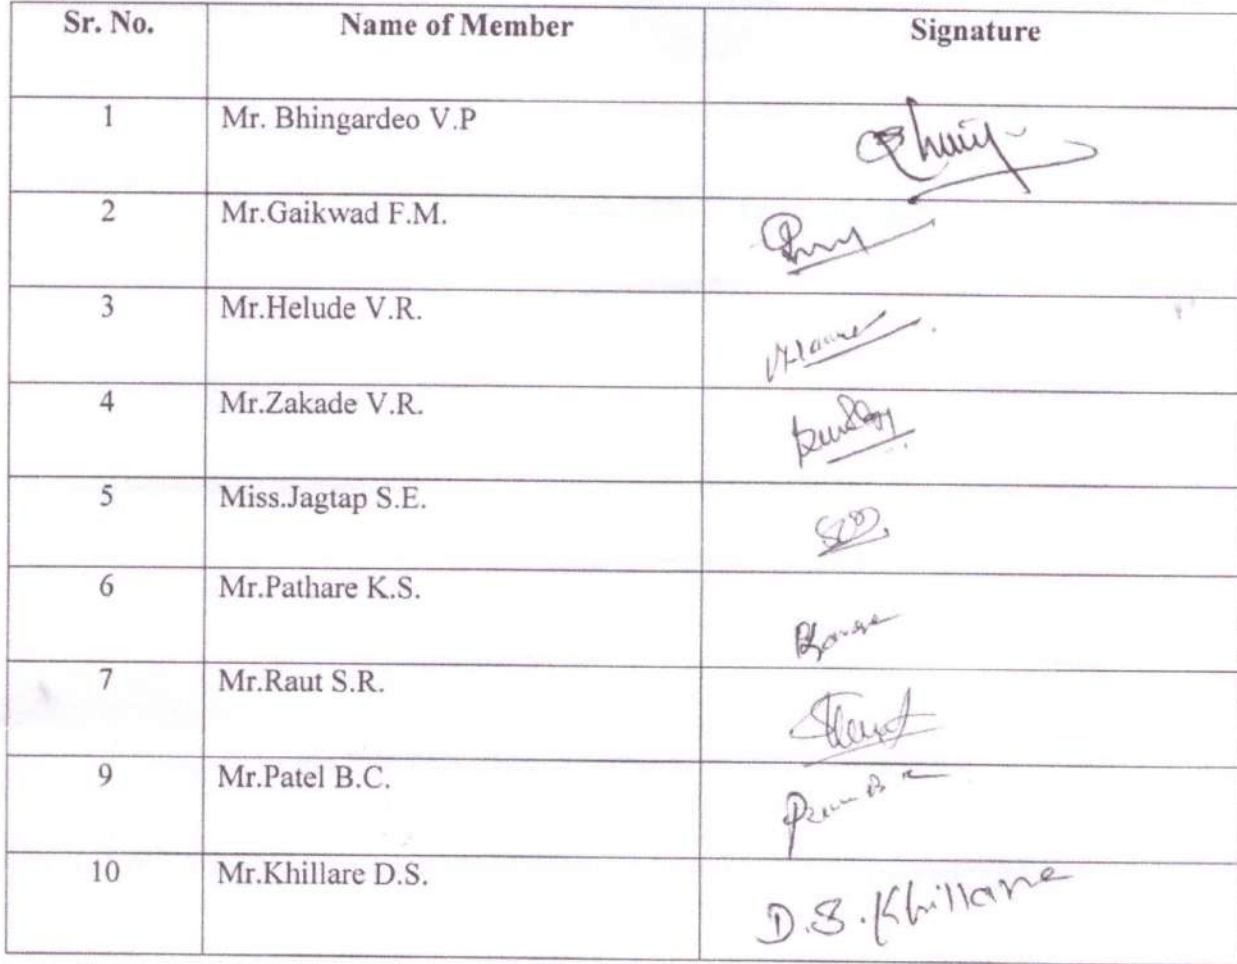 Sr. No. Name of Member Signature
1 Mr. Bhingardeo V.P
2 Mr.Gaikwad F.M.
3 Mr.Helude V.R.
4 Mr.Zakade V.R.
5 Miss.Jagtap S.E.
6 Mr.Pathare K.S.
7 Mr.Raut S.R.
9 Mr.Patel B.C.
10 Mr.Khillare D.S. D.S.Khillare